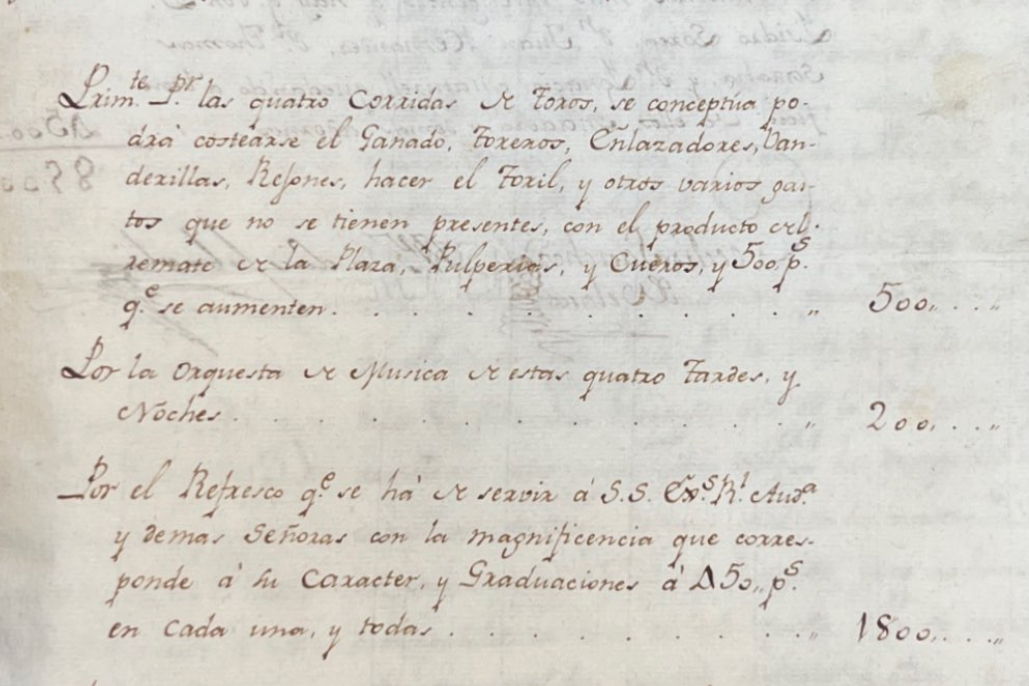 Prim.te P.r las quatro Corridas de Toros, se conceptúa po-
drà costearse el Ganado, Toreros, Enlazadores, Van-
derillas, Rejones, hacer el Toril, y otros varios gas-
tos que no se tienen presentes, con el producto del
remate de la Plaza, Pulperias, y Cueros, y 500 p.s
q.e se aumenten . . . . . . . . . . „ 500„ . . „
Por la Orquesta de Musica de estas quatro Tardes, y
Noches . . . . . . . . . . „ 200„ . . „
Por el Refresco q.e se há de servir á S.S. Exs. R.l Aud.a
y demas Señoras con la magnificencia que corres-
ponde á su Caracter, y Graduaciones á 450„ p.s
en cada una, y todas . . . . . . . . „ 1800„ . . „